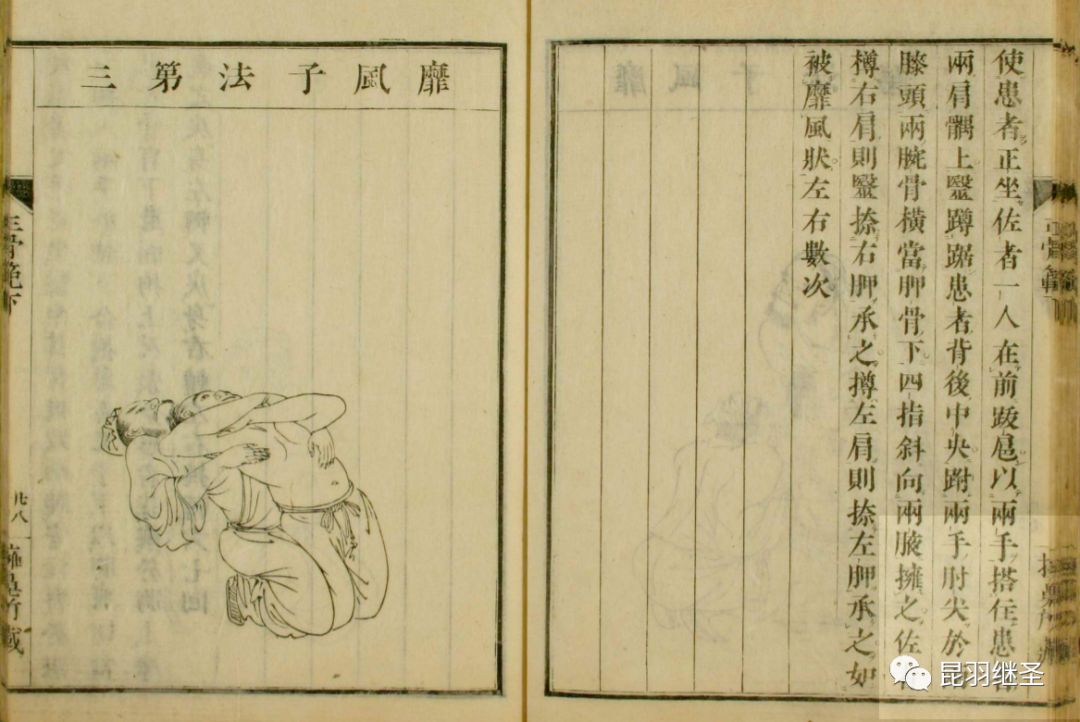 使患者正坐佐者一人在前以兩手搭在患
兩肩髃上毉蹲踞患者背後中央跗兩手肘尖於
膝頭兩腕骨橫當胛骨下四指斜向兩腋擁之佐
撙右肩則毉捺右胛承之撙左肩則捺左胛承之如
被靡風狀左右數次
靡風子法第三
正骨範下
廿八
昆羽继圣